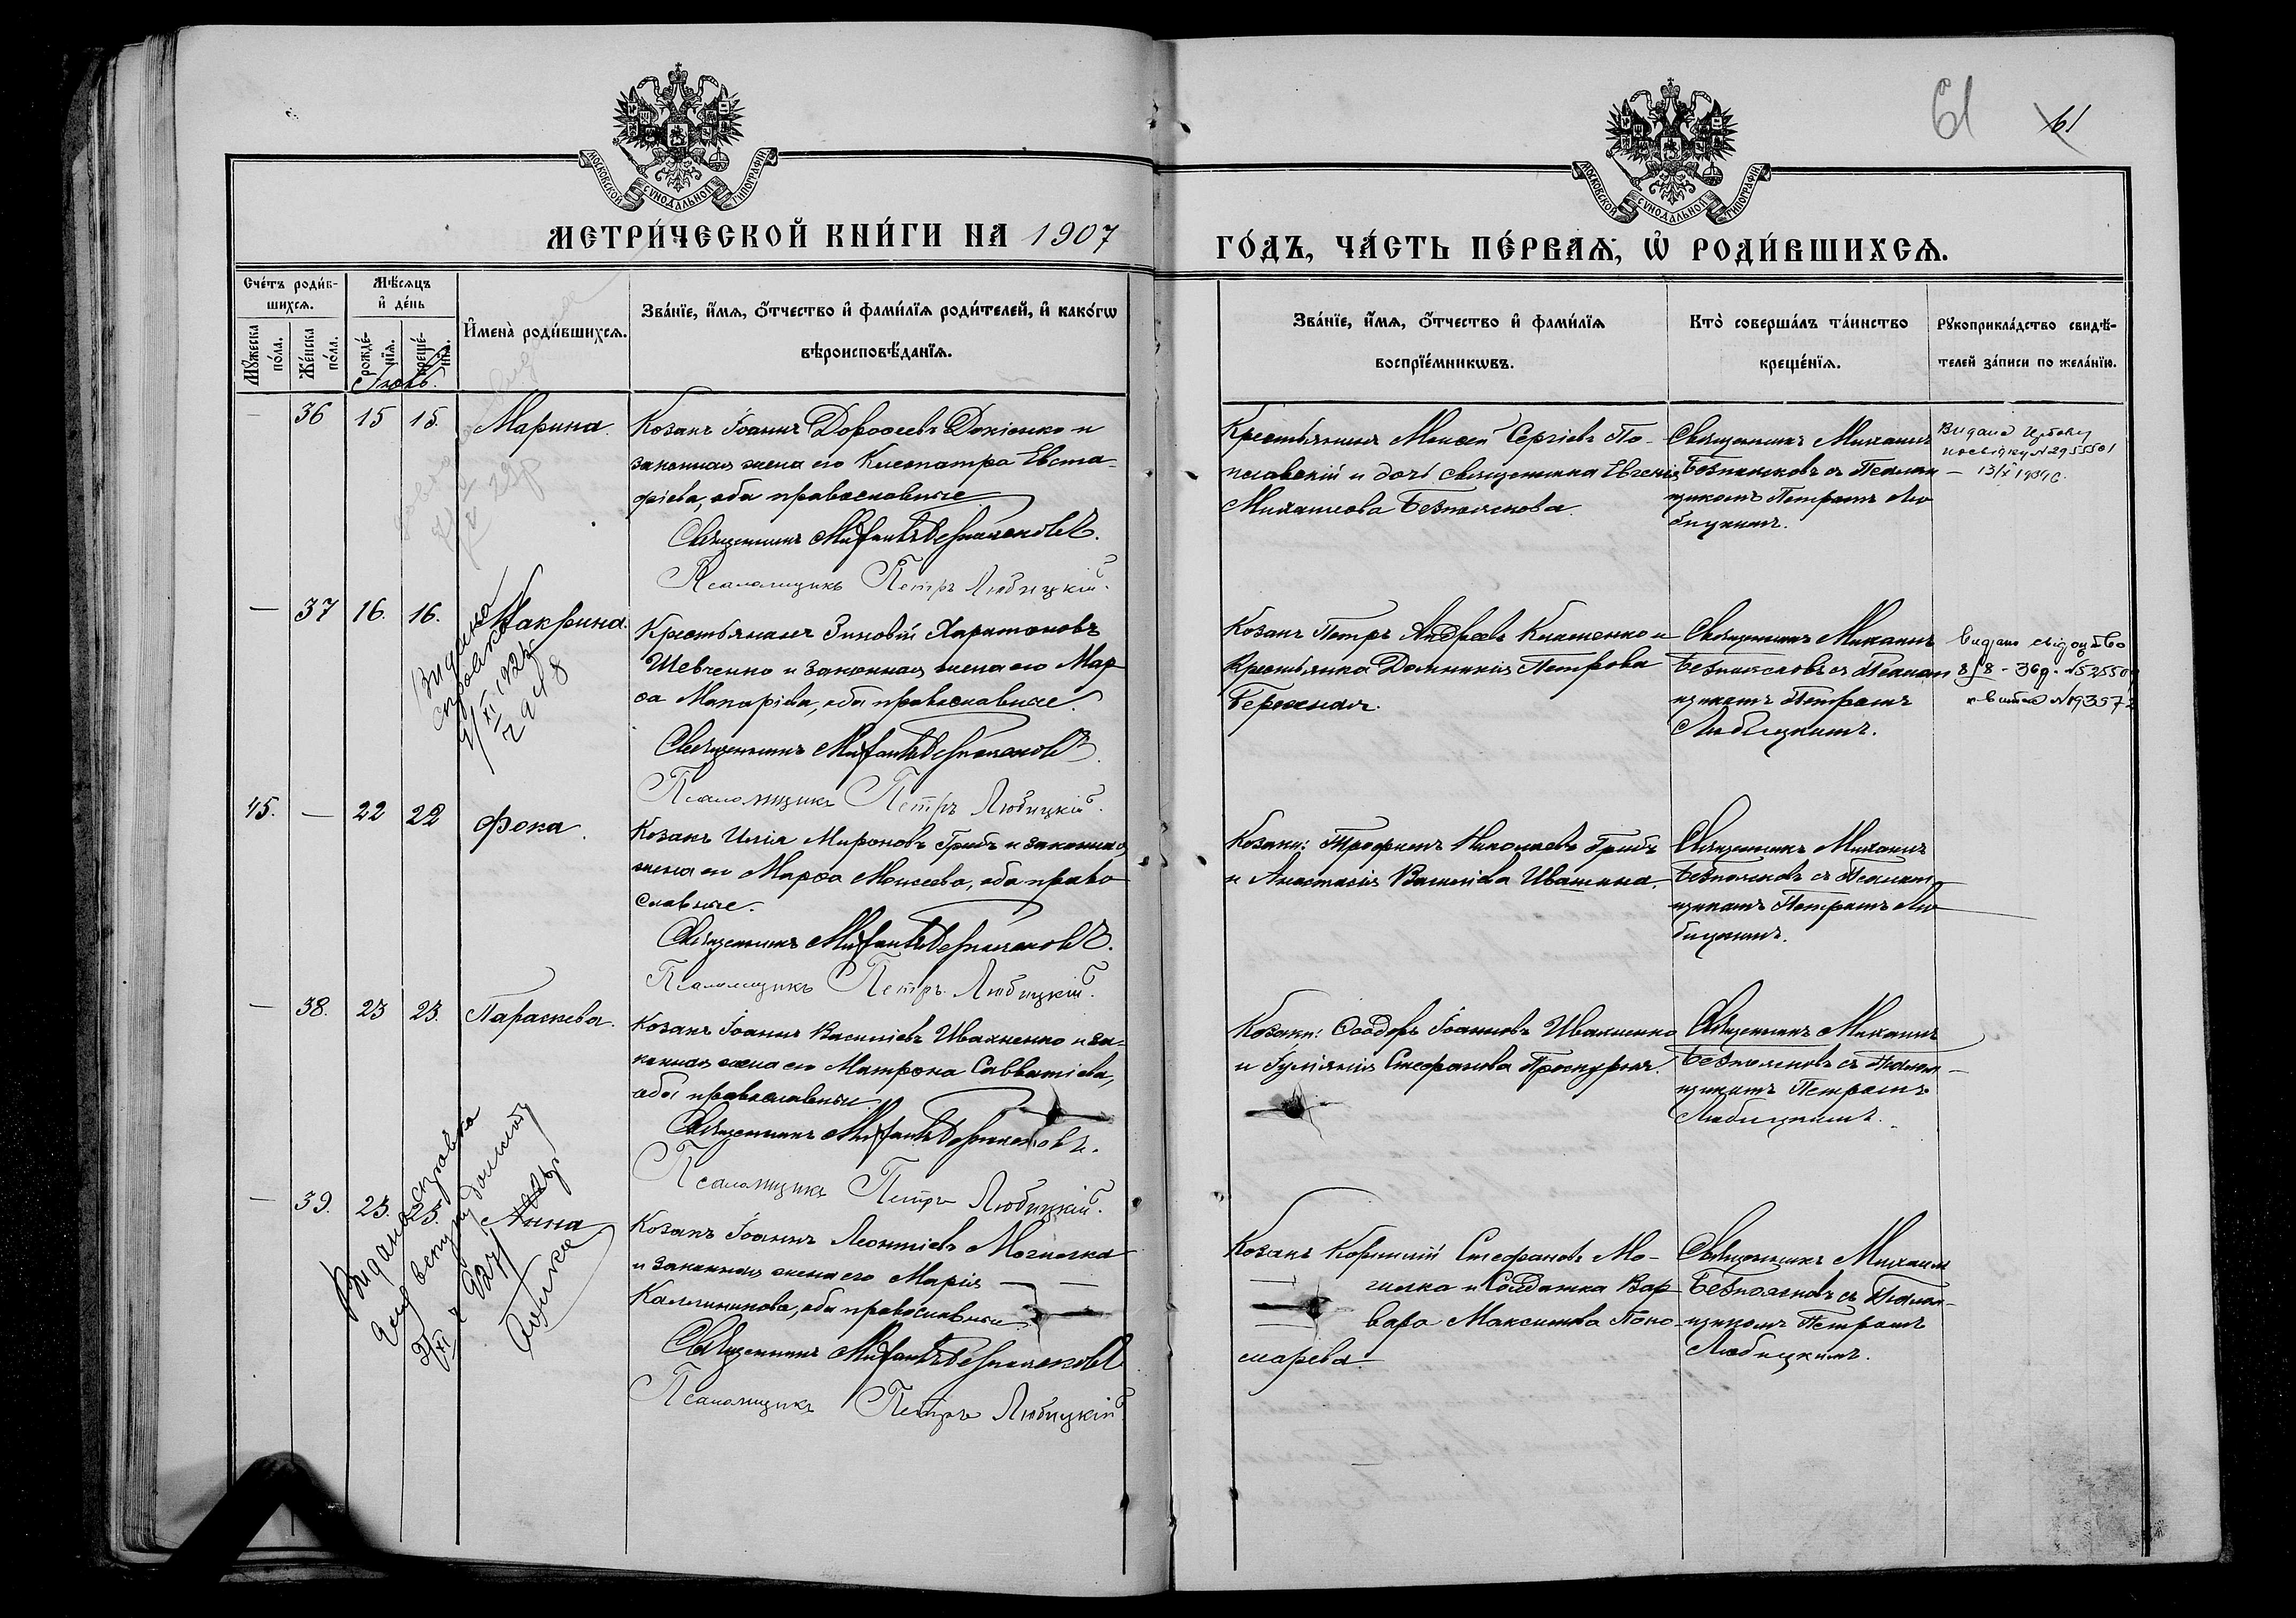 61
61
МОСКОВСКОЙ СѴНОДАЛЬНОЙ ТИПОГРАФІИ
МОСКОВСКОЙ СѴНОДАЛЬНОЙ ТИПОГРАФІИ
МЕТРИ́ЧЕСКОЙ КНИ́ГИ НА 1907
ГО́ДЪ, ЧА́СТЬ ПЕ́РВАѦ, Ѡ҆ РОДИ́ВШИХСѦ.
Сче́тъ роди́в-
шихсѧ.
Мꙋ́жеска по́ла.
Же́нска по́ла.
Мѣ́сѧцъ
и҆ де́нь
рожде́-
нїѧ.
креще́-
нїѧ.
И҆мена̀ роди́вшихсѧ.
Зва́нїе, и҆́мѧ, ѻ҆́тчество и҆ фами́лїѧ роди́телей, и҆ како́гѡ
вѣроисповѣ́данїѧ.
Зва́нїе, и҆́мѧ, ѻ҆́тчество и҆ фами́лїѧ
воспрїе́мникѡвъ.
Кто̀ соверша́лъ та́инство
креще́нїѧ.
Рꙋкоприкла́дство свидѣ́-
телей за́писи по жела́нїю.
— 36 15 15. Марина.
Козакъ Іоаннъ Дорофеевъ Докіенко и
законная жена его Клеопатра Евста-
фіева, оба православные
Священникъ Михаилъ Безпоясковъ.
Псаломщикъ Петръ Любицкій.
Крестьянинъ Моисей Сергіевъ По-
пославскій и дочь священника Евгенія
Михаилова Безпояскова.
Священникъ Михаилъ
Безпоясковъ съ Псалом
щикомъ Петромъ Лю
бицкимъ.
13/X 1939
— 37 16. 16. Макрина.
Крестьянинъ Зиновій Харитоновъ
Шевченко и законная жена его Мар
ѳа Макаріева, оба православные.
Священникъ Михаилъ Безпоясковъ.
Псаломщикъ Петръ Любицкій.
Видана
справка
9/XI 1927
Козакъ Петръ Андреевъ Клименко и
Крестьянка Домникія Петрова
Бережная.
Священникъ Михаилъ
Безпоясковъ съ Псалом
щикомъ Петромъ
Любицкимъ.
8/8 - 36
45. — 22 22 Фока.
Козакъ Илія Мироновъ Грибъ и законная
жена его Марѳа Моисеева, оба право
славные.
Священникъ Михаилъ Безпоясковъ.
Псаломщикъ Петръ Любицкій.
Козаки: Трофимъ Николаевъ Грибъ
и Анастасія Василіева Ивашина.
Священникъ Михаилъ
Безпоясковъ съ Псалом
щикомъ Петромъ Лю
бицкимъ.
— 38. 23 23. Параскева.
Козакъ Іоаннъ Василіевъ Ивахненко и за-
конная жена его Матрона Савватіева,
оба православные
Священникъ Михаилъ Безпоясковъ.
Псаломщикъ Петръ Любицкій.
Козаки: Ѳеодоръ Іоанновъ Ивахненко
и Іуліанія Стефанова Проскурня.
Священникъ Михаилъ
Безпоясковъ съ Псалом-
щикомъ Петромъ
Любицкимъ.
— 39. 23. 25. Анна
Козакъ Іоаннъ Леонтіевъ Могилка
и законная жена его Марія
Каллиникова, оба православные
Священникъ Михаилъ Безпоясковъ
Псаломщикъ Петръ Любицкій.
Видана справка
Козакъ Корнилій Стефановъ Мо-
гилка и Солдатка Вар
вара Максимова Поно-
марева.
Священникъ Михаилъ
Безпоясковъ съ Псалом-
щикомъ Петромъ
Любицкимъ.